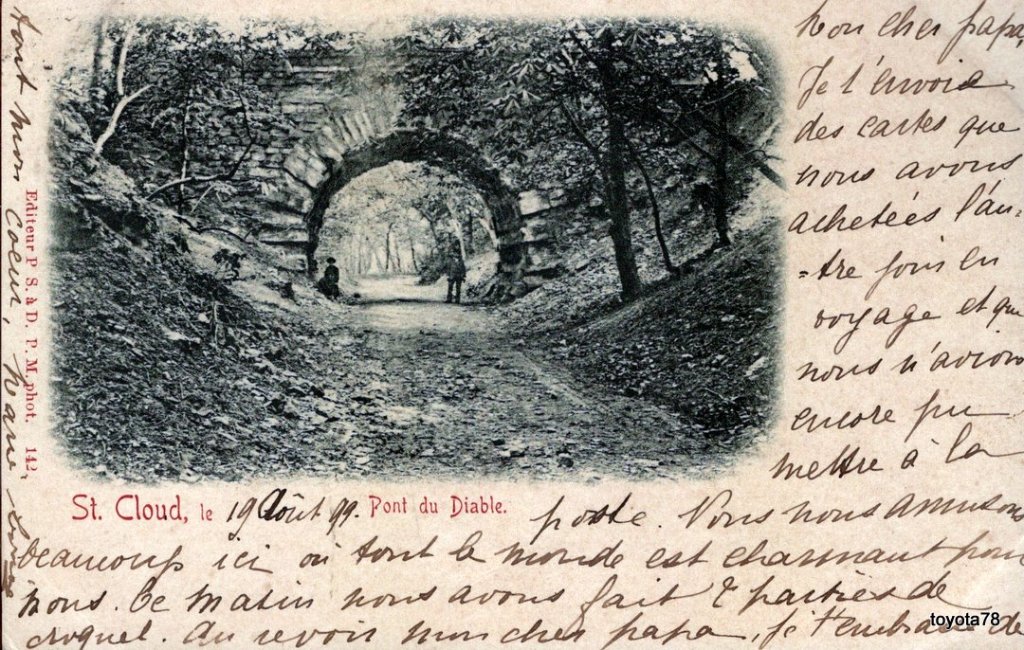 Mon cher papa,
Je t'envoie
des cartes que
nous avons
achetées l'au-
-tre jour en
voyage et que
nous n'avions
encore pu
mettre à la
St. Cloud, le 19 Août 99. Pont du Diable.
poste. Nous nous amusons
beaucoup ici où tout le monde est charmant pour
nous. Ce matin nous avons fait 2 parties de
croquet. Au revoir mon cher papa, je t'embrasse de
tout mon coeur, Marie
Editeur P. S. à D. P. M. phot. 142.
toyota78